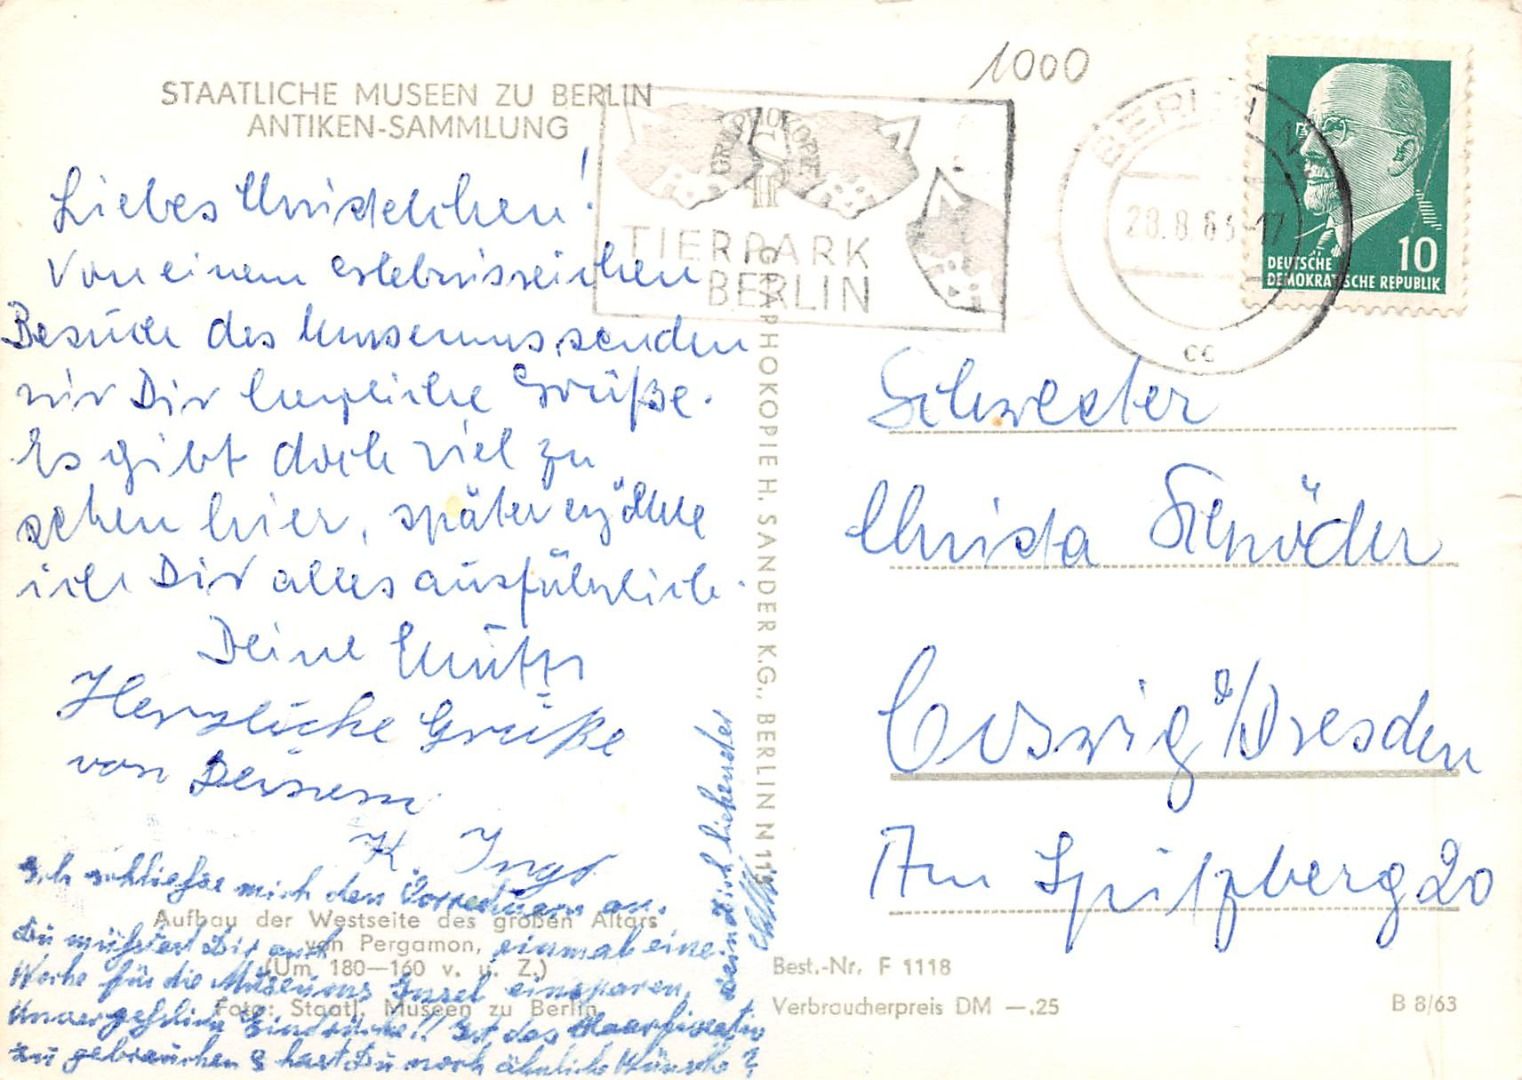 STAATLICHE MUSEEN ZU BERLIN
ANTIKEN-SAMMLUNG
Liebes Christelchen!
Von einem erlebnisreichen
Besuch des Museums, senden
wir Dir herzliche Grüße.
Es gibt doch viel zu
sehen hier, später erzähle
ich Dir alles ausführlich.
Deine Mutti
Herzliche Grüße
von Deinem
K. Ingo
Ich schließe mich den Vorrednern an.
Du müßtest Dir auch einmal eine
Woche für die Museums Insel einsparen,
Unvergeßliche Eindrücke!! Ist das Haarfixativ
zu gebrauchen & hast Du noch ähnliche Wünsche?
Dein Dich liebender
Aufbau der Westseite des großen Altars
von Pergamon,
(Um 180—160 v. u. Z.)
Foto: Staatl. Museen zu Berlin
GRAPHOKOPIE
GRAPHOKOPIE H. SANDER K.G., BERLIN N 113
1000
TIERPARK
BERLIN
BERLIN N
28.8.63-17
cc
DEUTSCHE
DEMOKRATISCHE REPUBLIK
10
Schwester
Christa Schröder
Coswig b/Dresden
Am Spitzberg 20
Best.-Nr. F 1118
Verbraucherpreis DM —.25
B 8/63